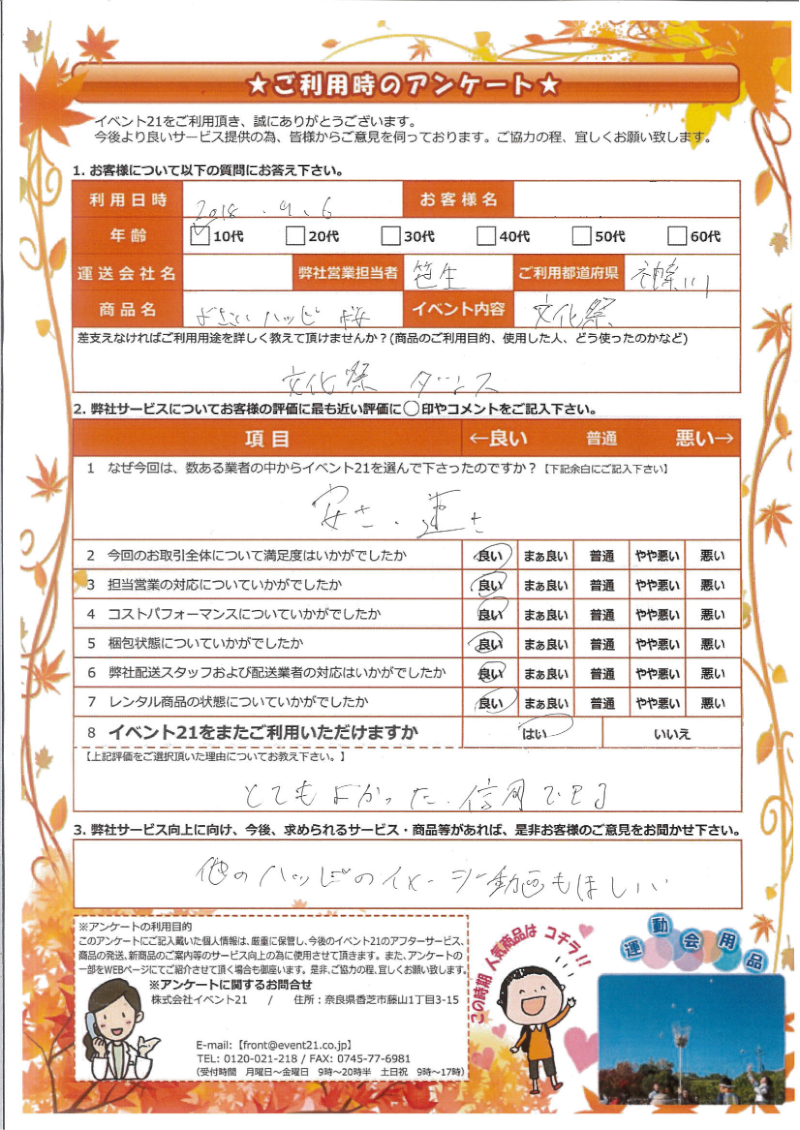 ★ご利用時のアンケート★
イベント21をご利用頂き、誠にありがとうございます。
今後より良いサービス提供の為、皆様からご意見を伺っております。ご協力の程、宜しくお願い致します。
1. お客様について以下の質問にお答え下さい。
利用日時 2018.9.6 お客様名
年齢 10代 20代 30代 40代 50代 60代
運送会社名 弊社営業担当者 笹生 ご利用都道府県 神奈川
商品名 よさこいハッピ 桜 イベント内容 文化祭
差支えなければご利用用途を詳しく教えて頂けませんか？(商品のご利用目的、使用した人、どう使ったのかなど)
文化祭 ダンス
2. 弊社サービスについてお客様の評価に最も近い評価に○印やコメントをご記入下さい。
項目 ←良い 普通 悪い→
1 なぜ今回は、数ある業者の中からイベント21を選んで下さったのですか？【下記余白にご記入下さい】
安さ、速さ
2 今回のお取引全体について満足度はいかがでしたか 良い まぁ良い 普通 やや悪い 悪い
3 担当営業の対応についていかがでしたか 良い まぁ良い 普通 やや悪い 悪い
4 コストパフォーマンスについていかがでしたか 良い まぁ良い 普通 やや悪い 悪い
5 梱包状態についていかがでしたか 良い まぁ良い 普通 やや悪い 悪い
6 弊社配送スタッフおよび配送業者の対応はいかがでしたか 良い まぁ良い 普通 やや悪い 悪い
7 レンタル商品の状態についていかがでしたか 良い まぁ良い 普通 やや悪い 悪い
8 イベント21をまたご利用いただけますか はい いいえ
【上記評価をご選択頂いた理由についてお教え下さい。】
とてもよかった、信用できる
3. 弊社サービス向上に向け、今後、求められるサービス・商品等があれば、是非お客様のご意見をお聞かせ下さい。
他のハッピのイメージ動画もほしい
※アンケートの利用目的
このアンケートにご記入戴いた個人情報は、厳重に保管し、今後のイベント21のアフターサービス、
商品の発送、新商品のご案内等のサービス向上の為に使用させて頂きます。また、アンケートの
一部をWEBページにてご紹介させて頂く場合も御座います。是非、ご協力の程、宜しくお願い致します。
※アンケートに関するお問合せ
株式会社イベント21 / 住所：奈良県香芝市藤山1丁目3-15
E-mail:【front@event21.co.jp】
TEL: 0120-021-218 / FAX: 0745-77-6981
（受付時間 月曜日～金曜日 9時～20時半 土日祝 9時～17時）
この時期 人気商品は コチラ!!
運動会用品